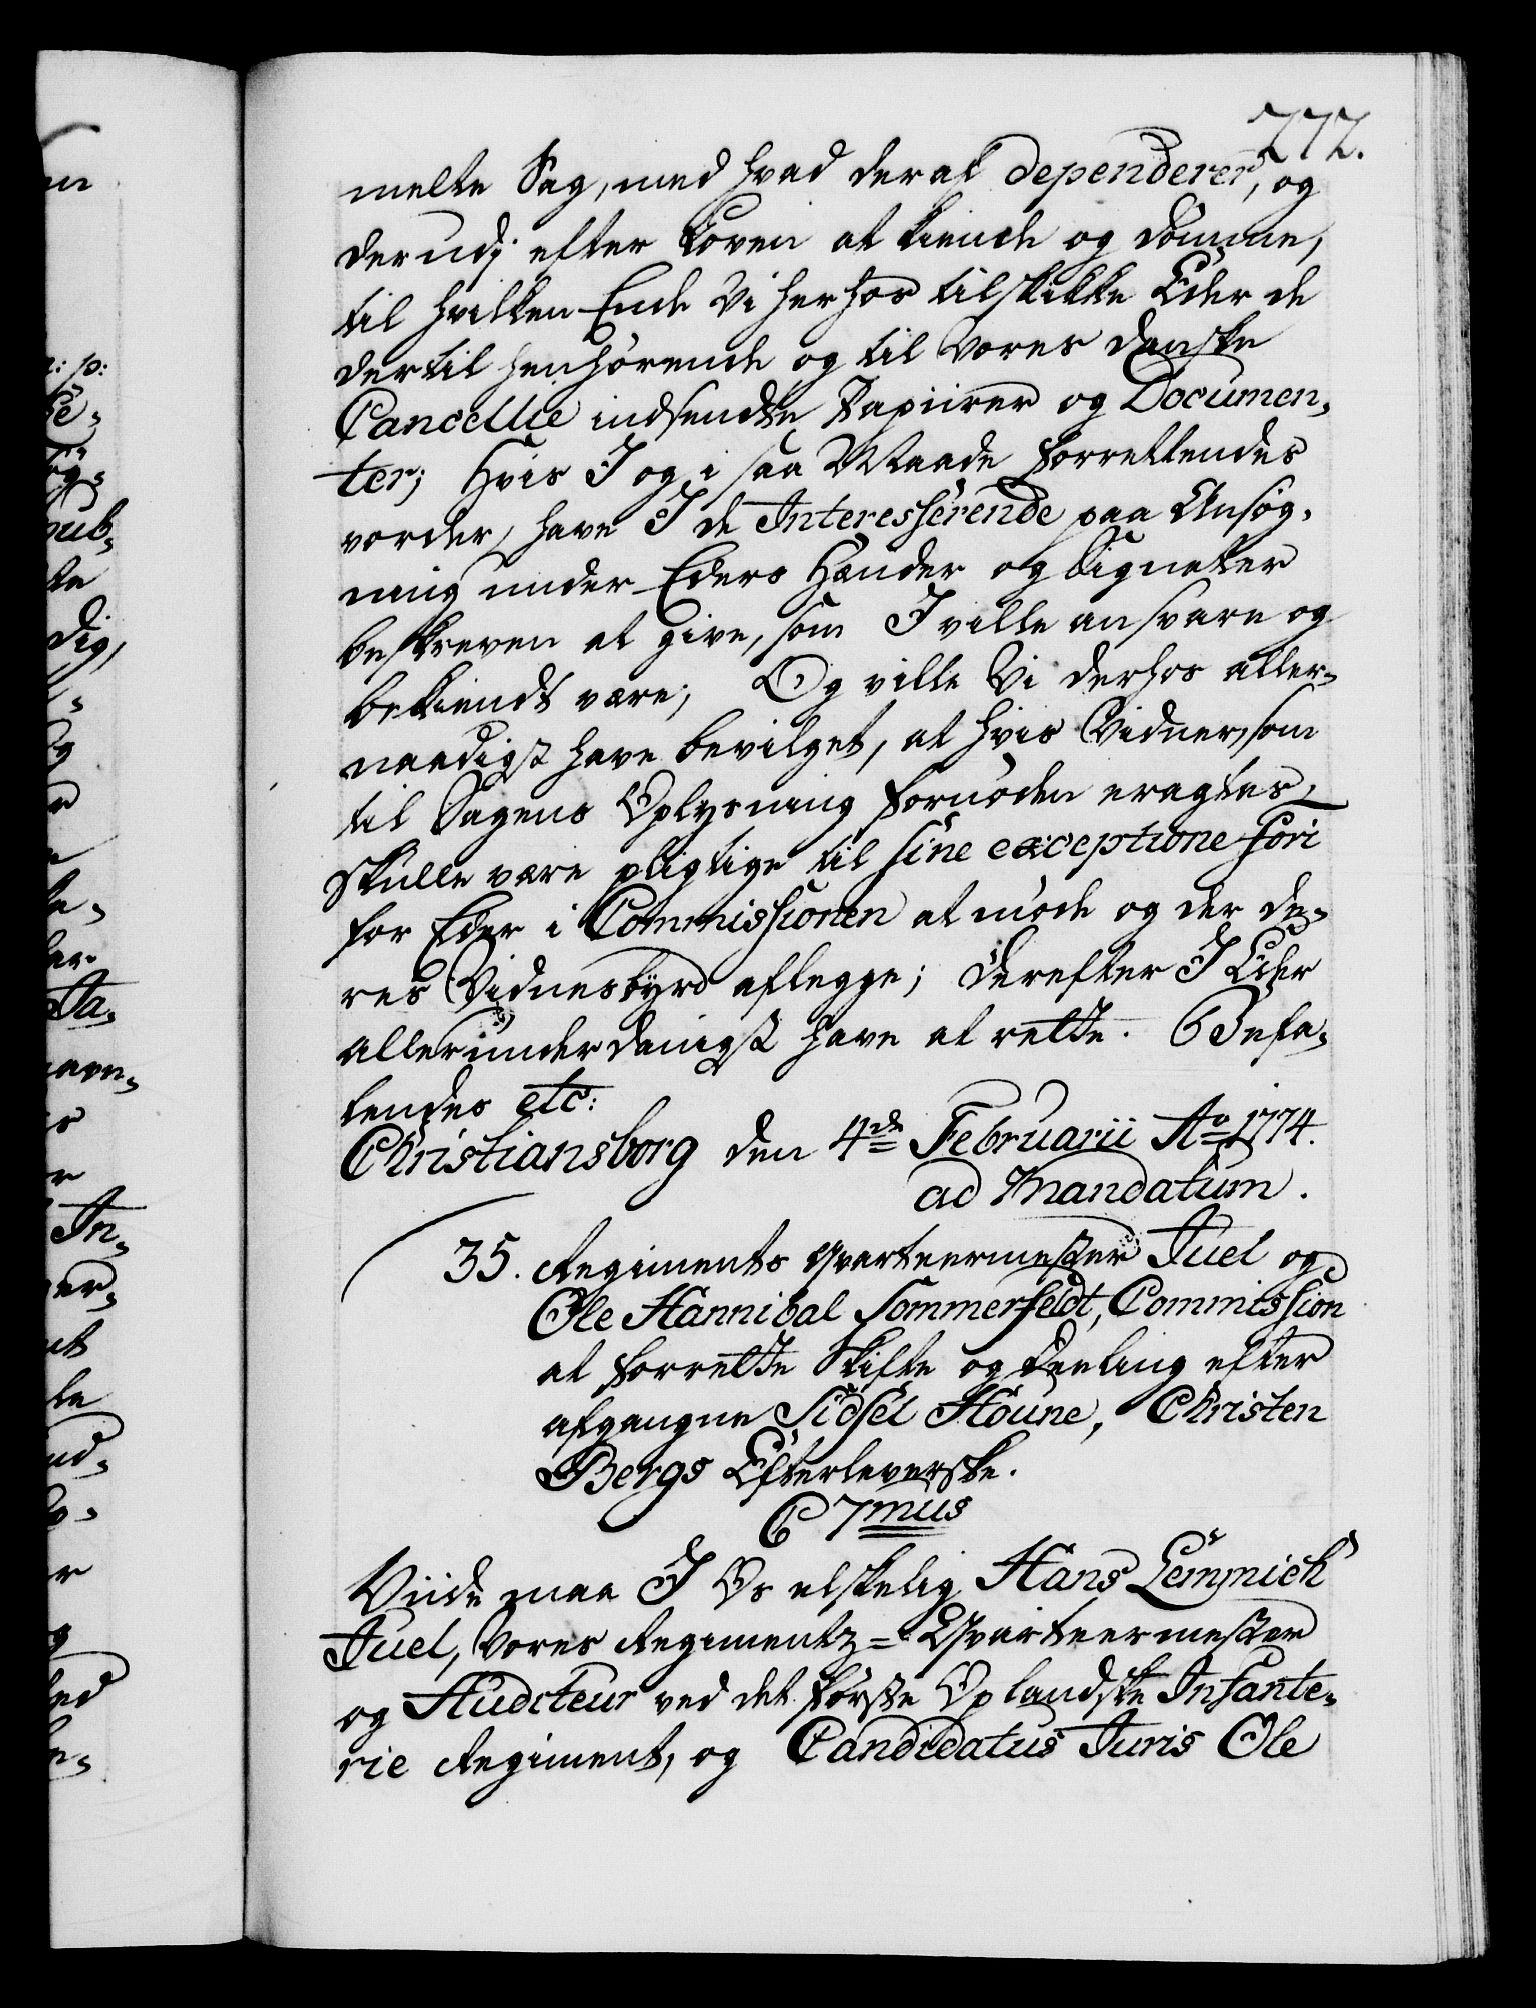 777.
melte Sag, med hvad deraf dependerer, og
derudj efter Loven at kiende og dømme,
til hvilken Ende Vi herhos tilskikke Eder de
dertil henhørende og til Vores Danske
Cancellie indsendte Papiirer og Documen-
ter; Hvis I og i saa Maade forrettendes
vorder, have I de Interesserende paa Ansøg-
ning under Eders Hænder og Signeter
beskreven at give, som I ville ansvare og
bekiendt være; Og ville Vi derhos aller-
naadigst have bevilget, at hvis Vidner, som
til Sagens Oplysning fornøden eragtes,
skulle være pligtige til sine exceptione fori
for Eder i Commissionen at møde og der de-
res Vidnesbyrd aflegge; Derefter I Eder
allerunderdanigst have at rette. Befa-
lendes etc:
Christiansborg den 4de Februarii Ao 1774.
ad Mandatum.
35. Regiments Qvarteermester Juel og
Ole Hannibal Sommerfeldt, Commission
at forrette Skifte og Deeling efter
afgangne Sidsel Høune, Christen
Bergs Efterleverske.
C 7mus
Viide maa I Os elskelig Hans Lemmich
Juel, Vores Regimentz-Qvarteermester
og Auditeur ved det første Oplandske Infante-
rie Regiment, og Candidatus Juris Ole